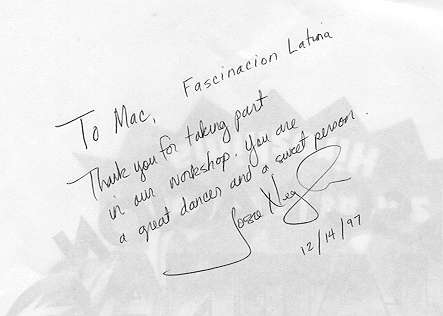 Fascinacion Latina
To Mac,
Thank you for taking part
in our workshop. You are
a great dancer and a sweet person.
Josie
12/14/97